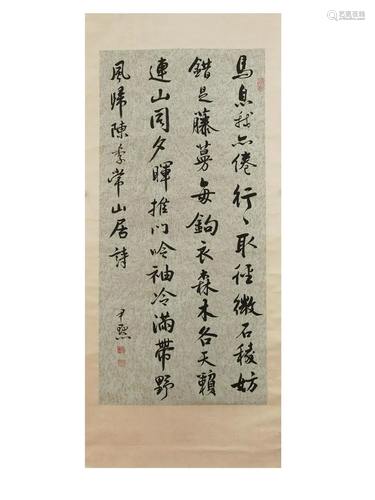 馬息我亦倦行、取徑微石稜妨
錯足藤蔓每鉤衣森木各天籟
連山同夕暉推門吟袖冷滿帶野
風歸陳季常山居詩
尹默